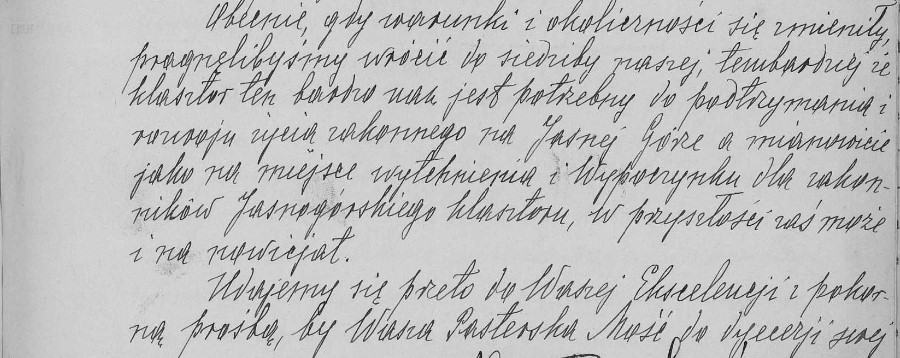 Obecnie, gdy warunki i okoliczności się zmieniły,
pragnęlibyśmy wrócić do siedziby naszej, tembardziej że
klasztor ten bardzo nam jest potrzebny do podtrzymania i
rozwoju życia zakonnego na Jasnej Górze a mianowicie
jako na miejsce wytchnienia i Wypoczynku dla zakon-
ników Jasnogórskiego klasztoru, w przyszłości zaś może
i na nowicjat.
Udajemy się przeto do Waszej Ekscelencji z pokor-
ną prośbą, by Wasza Pasterska Mość do dyecezji swej